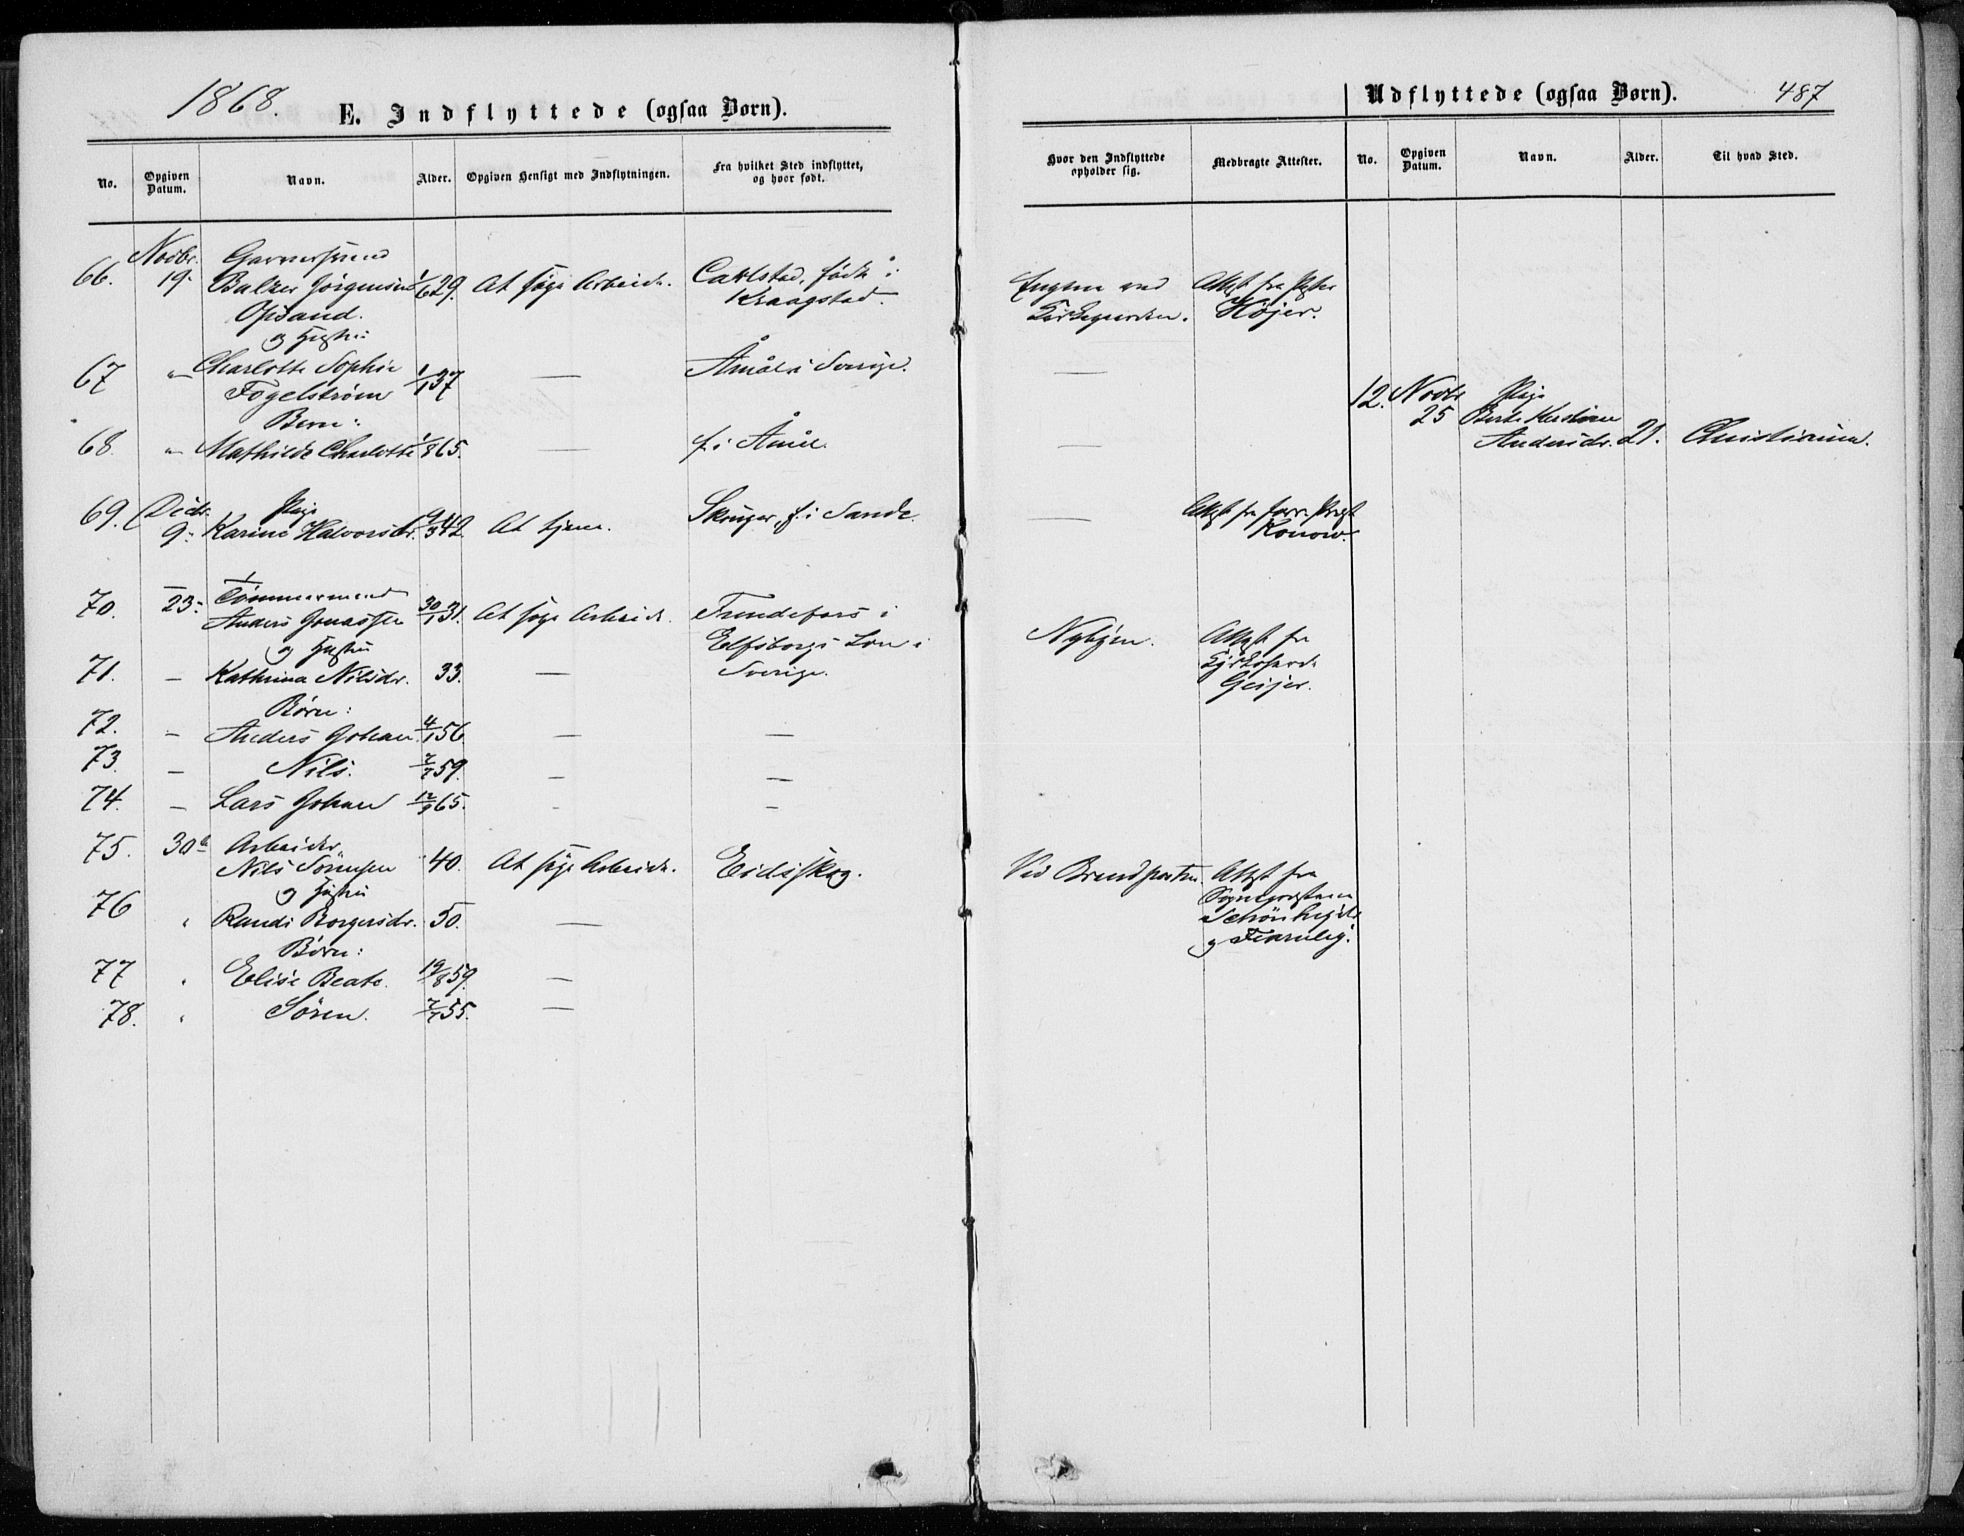 1868.
E. Indflyttede (ogsaa Børn).
No.
Opgiven Datum.
Navn.
Alder.
Opgiven Hensigt med Indflytningen.
Fra hvilket Sted indflyttet, og hvor født.
66. Novbr. 19.
Balzer Jörgensen
Opsand.
1/6 29. At søge Arbeide.
Carlstad, født i
Kraagstad.
og Hustru
67 " Charlotte Sophie
Fogelström
1/1 37 — Åmål i Sverige.
Barn:
68. " Mathilde Charlotte 1/8 65. — f. i Åmål.
69. Decbr. 9. Pige
Karine Halvorsdr. 9/3 42 At tjene. f. i Sande.
70. 23. Tömmermand
Anders Jonassen 30/1 31. At søge Arbeide.
Elfsborgs Län i
Sverige.
og Hustru
71. — Kathrina Nilsdr. 33. —
Børn:
72. — Anders Johan 4/1 56. — —
73. — Nils. 2/7 59. — —
74. — Lars Johan 12/9 65. - -
75. 30 Arbeider
Nils Sörensen 40. At søge Arbeide. Eidsskog.
og Hustru
76 " Randi Borgersdr. 50. —
Børn:
77 " Elise Beate. 19/8 59. —
78. " Sören. 2/7 55. —
Udflyttede (ogsaa Børn).
487
Hvor den Indflyttede opholder sig.
Medbragte Attester.
No.
Opgiven Datum.
Navn.
Alder.
Til hvad Sted.
Engene ved
Kirkegaarden.
Attest fra
Höjer.
—
—
—
Attest fra
Konow.
Attest fra
Geijer.
Ved Attest fra
Sognepræsterne
12. Novbr. 25 Pige
Andersdr. 21. Christiania.